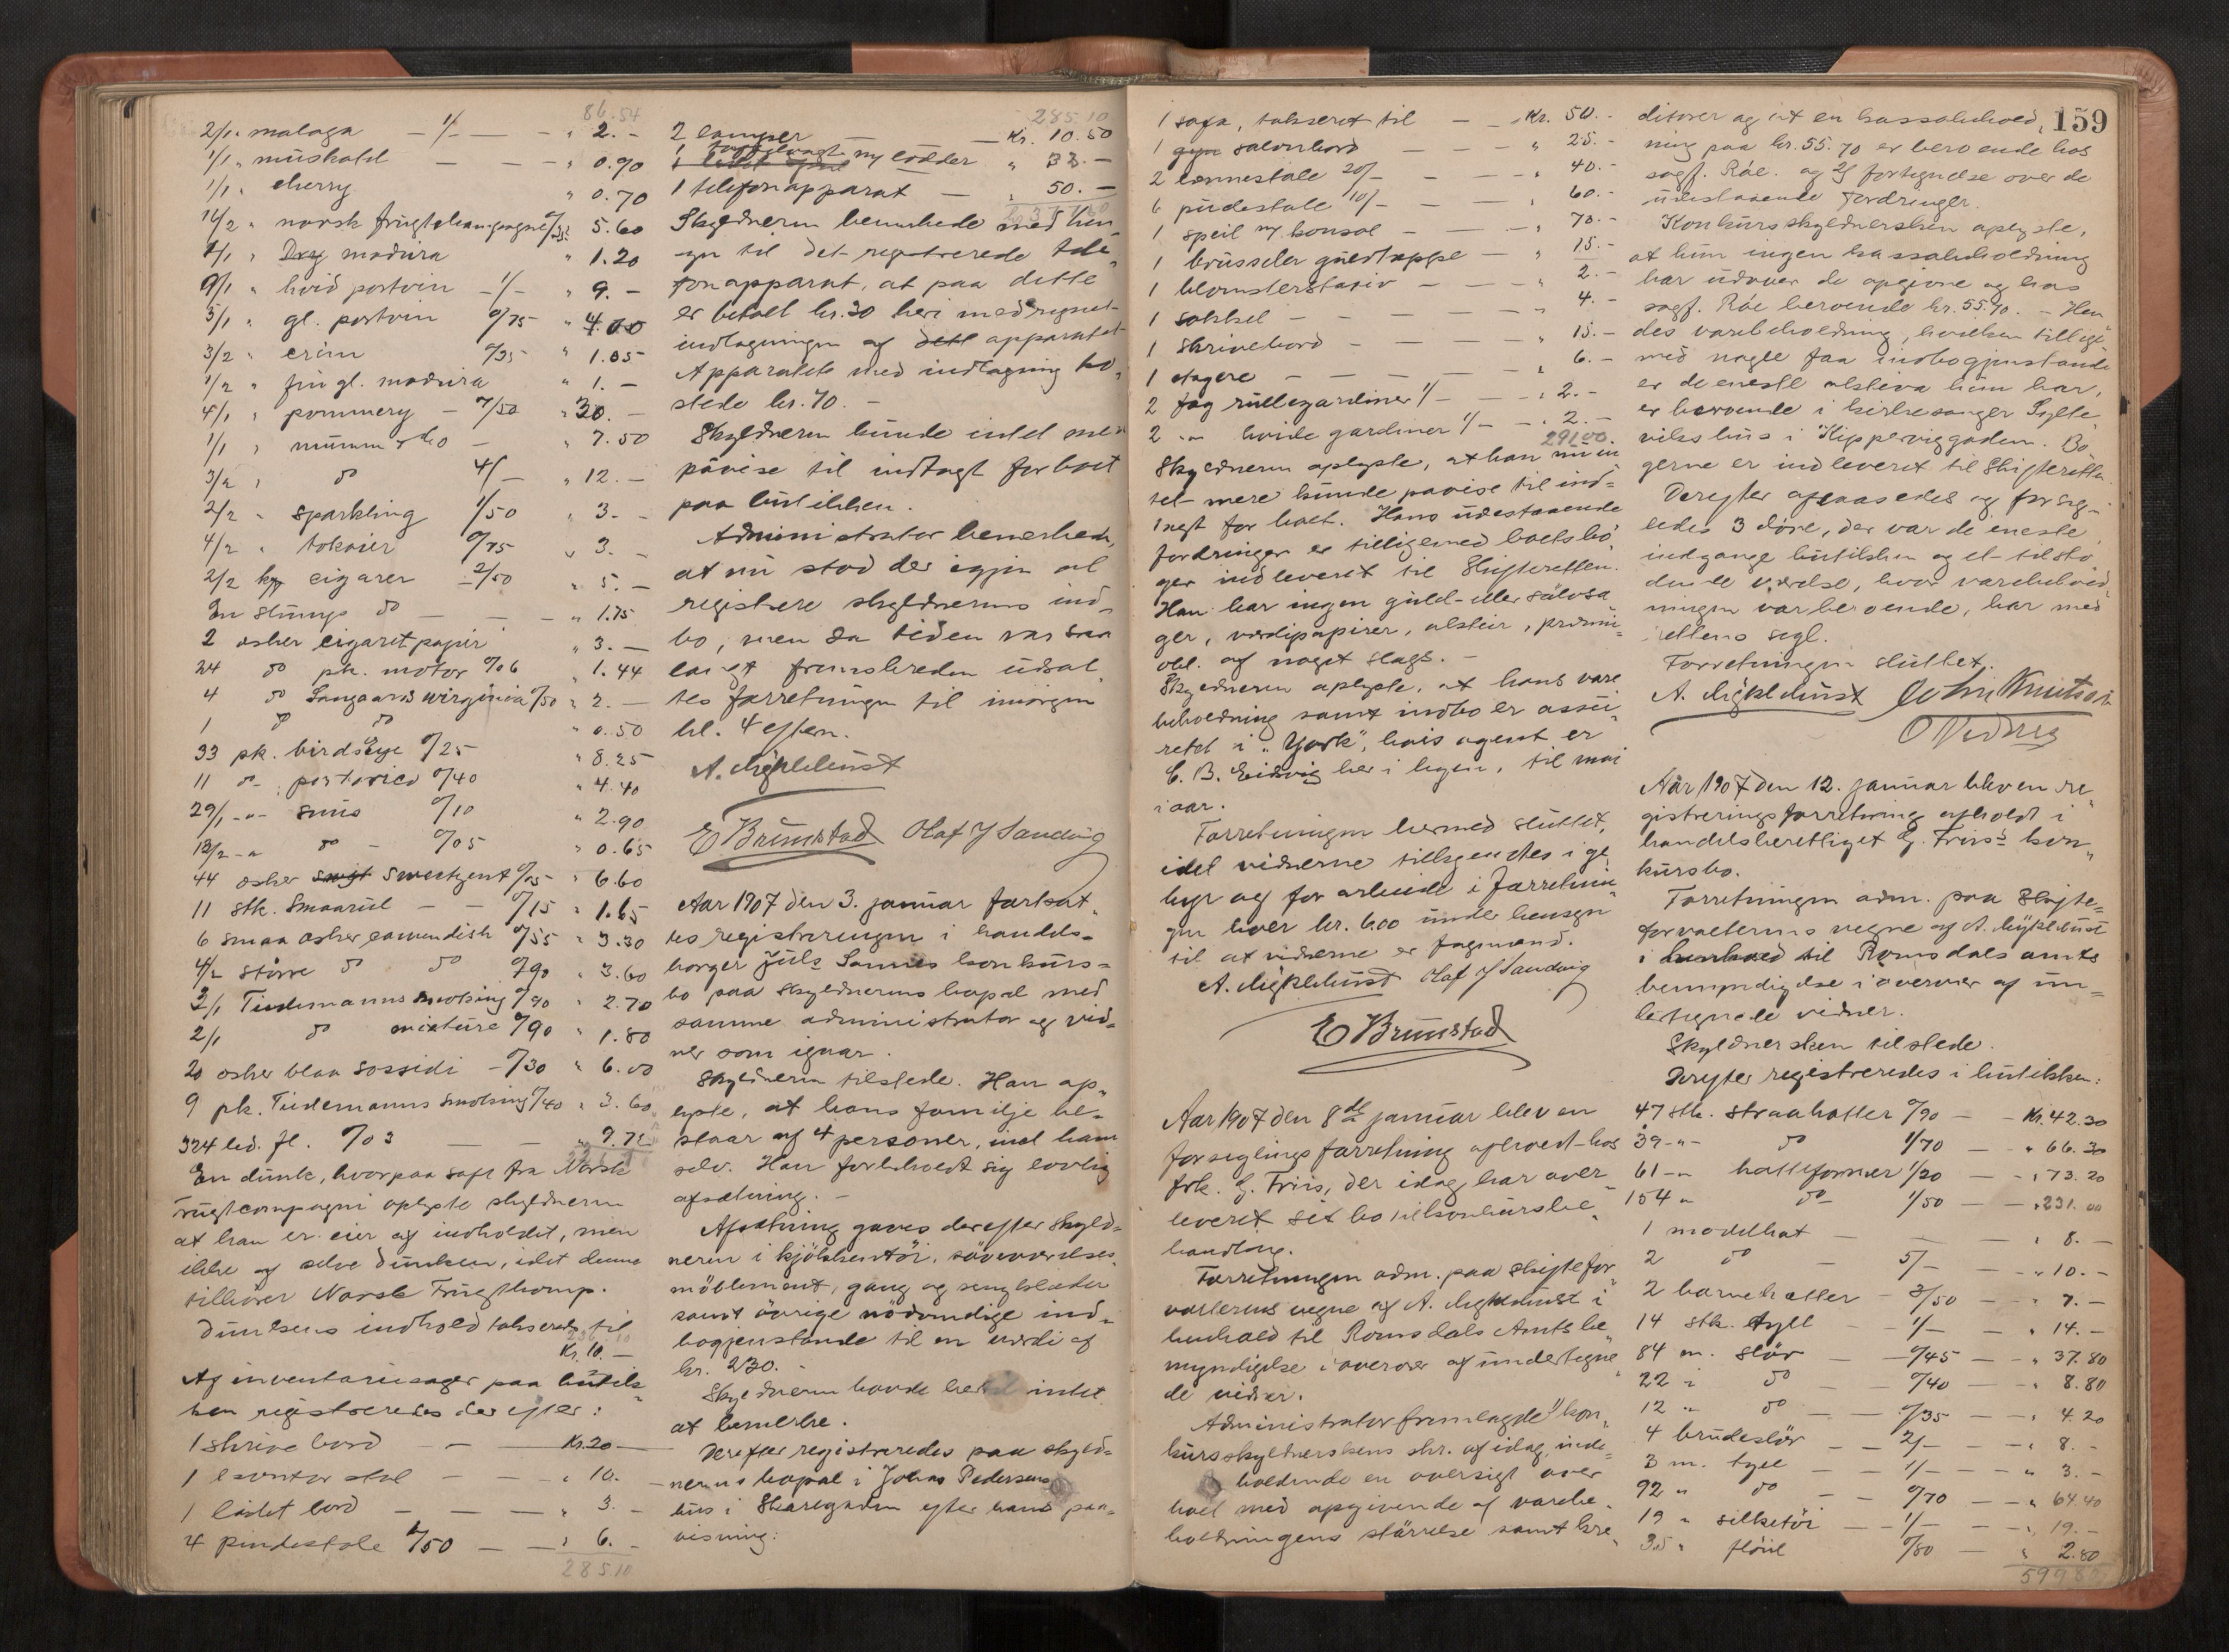 86.54
2/1 " malaga — 1/- — - " 2.-
1/1 " muskatel — — - " 0.90
1/1 " cherry " 0.70
14/2 " norsk frugtchampagne 5.60
1/1 " Dry madeira " 1.20
9/1 " hvid portvin -1/- " 9.-
gl. portvin 0/75
3/2 " 0/35 " 1.05
1/2 " fin gl. madeira " 1.-
4/1 " pommery - 7/50 " 30.-
1/1 " mumm & co - " 7.50
3/2 " do 4/- " 12.-
2/2 " sparkling 1/50 " 3.-
4/2 " tokaier 0/75 " 3.-
2/2 cigarer 2/50 " 5.-
En slump do — - - " 1.75
2 æsker cigaretpapir " 3.-
24 do pk. motor 0/06 " 1.44
4 do Langaards wirginia 0/50 " 2.-
1 do do " 0.50
33 pk. birdseye 0/25 " 8.25
11 do portorico 0/40 " 4.40
29/1 -"- snus 0/10 " 2.90
13/2 -" do - 0/05 " 0.65
44 æsker sweetzent 0/15 " 6.60
11 stk. Smaarul — - 0/15 " 1.65
6 smaa æsker cavendish 0/55 " 3.30
4/2 större do do 0/90 " 3.60
3/1 Tiedemanns smoking 0/90 " 2.70
2/1 do mixture 0/90 " 1.80
20 æsker blaa - 0/30 " 6.00
9 pk. Tiedemanns smoking 0/40 " 3.60
324 led. fl. 0/03 — — " 9.72
En dunk, hvorpaa saft fra Norsk
Frugtcompagni oplyste skyldneren
at han er eier af indholdet, men
ikke af selve dunken, idet denne
tilhører Norsk Frugtkomp.
Dunkens indhold takseredes til
Kr. 10.-
Af inventariesager paa butik-
ken registreredes derefter:
1 skrivebord — - Kr. 20 -
1 kontorstol — - - " 10.-
1 lidet bord — — - " 3.-
4 pindestole 1/50 — - " 6.-
285.10
285.10
2 lamper — — Kr. 10.50
1 ny lodder " 33.-
1 telefonapparat — " 50.-
Skyldneren bemærkede med hen-
syn til det registrerede tele-
fonapparat, at paa dette
er betalt kr. 30 heri medregnet
indtagningen af apparatet
Apparatets med indtagning ko-
stede kr. 70.-
Skyldneren kunde intet mer
påvise til indtægt for boet
paa butikken.
Administrator bemerkede,
at nu stod der igjen at
registrere skyldnerens ind-
bo, men da tiden var saa
langt fremskreden udsat-
tes forretningen til imorgen
kl. 4 eftm.
A. Myklebust
E Brunstad Olaf J Sandvig
Aar 1907 den 3. januar fortsat-
tes registreringen i handels-
borger Juls Sannes konkurs-
bo paa skyldnerens bopæl med
samme administrator og vid-
ner som igaar.
Skyldneren tilstede. Han op-
lyste, at hans familje be-
staar af 4 personer, incl ham
selv. Han forbeholdt sig lovlig
afsætning.-
Afsætning gaves derefter skyld-
neren i kjökkentöi, soveværelses-
möblement, gang og sengklæder
samt övrige nödvendige ind-
bogjenstande til en værdi af
kr. 230.-
Skyldneren havde hertil intet
at bemerke.
Derefter registreredes paa skyld-
nerens bopæl i Johns Pedersens
hus i Skaregaden efter hans paa-
visning:
159
1 sofa, takseret til — - Kr. 50.-
1 salonbord — - - " 25.-
2 lænestole 20/- — - - " 40.-
6 pindestole 10/- — - " 60.-
1 speil m/ konsol — — - " 70.-
1 brüsseler gulvtæppe — " 15.-
1 blomsterstativ — — - " 2.-
1 sokkel — — — - " 4.-
1 skrivebord — — - " 15.-
1 etagere — — — " 6.-
2 fag rullegardiner 1/- — " 2.-
2 -"- hvide gardiner 1/- - " 2.-
291.00
Skyldneren oplyste, at han nu in
tet mere kunde paavise til ind-
tægt for boet. Hans udestaaende
fordringer er tilligemed boets bö-
ger indleveret til Skifteretten.
Han har ingen guld- eller sölvsa-
ger, værdipapirer, aktier, præmie-
obl. af noget slags.-
Skyldneren oplyste, at hans vare
beholdning samt indbo er assu-
reret i "York", hvis agent er
C. B. Eidsvig her i byen, til mai
i aar.
Forretningen hermed sluttet,
idet vidnerne tillagdes i ge-
byr og for arbeide i forretnin-
gen hver kr. 6.00 under hensyn
til at vidnerne er fagmænd.
A. Myklebust Olaf J Sandvig
E Brunstad
Aar 1907 den 8de januar blev en
forseglingsforretning afholdt hos
frk. G. Friis, der idag har over-
leveret sit bo til konkursbe-
handling.
Forretningen adm. paa skiftefor-
valterens vegne af A. Myklebust i
henhold til Romsdals Amts be-
myndigelse i overvær af undertegne-
de vidner.
Administrator fremlagde 1) kon-
kursskyldnerskens skr. af idag, inde-
holdende en oversigt over
boet med opgivende af varebe-
holdningens störrelse samt kre-
ditorer og at en kassabehold-
ning paa kr. 55.70 er beroende hos
sagf. Råe. og 2) fortegnelse over de
udestaaende fordringer.
Konkursskyldnersken oplyste,
at hun ingen kassabeholdning
har udover de opgivne og hos
sagf. Råe beroende kr. 55.70. - Hen-
des varebeholdning, hvilken tillige
med nogle faa indbogjenstande
er de eneste aktiva hun har,
er beroende i kirkesanger Sylte-
viks hus i Kipperviggaden. Bö-
gerne er indleveret til Skifteretten.
Derefter aflaasedes og forseg-
ledes 3 döre, der var de eneste
indgange butikken og et tilstö-
dende værelse, hvor varebehold-
ningen var beroende, har med
rettens segl.
Forretningen sluttet.
A. Myklebust John Knutsen
O Vedøy
Aar 1907 den 12. januar blev en re-
gistreringsforretning afholdt i
handelsberettiget G. Friis's kon-
kursbo.
Forretningen adm. paa Skifte-
forvalterens vegne af A. Myklebust
i henhold til Romsdals amts
bemyndigelse i overvær af un-
dertegnede vidner.
Skyldnersken tilstede.
Derefter registreredes i butikken:
47 stk. straahatter 0/90 — - Kr. 42.30
39 -"- do 1/70 — - " 66.30
61 -" hatteformer 1/20 — - " 73.20
154 " do 1/50 — - " 231.00
1 modelhat — — - " 8.-
2 do — 5/- — - " 10.-
2 barnehatter - 3/50 — " 7.-
14 stk. tyll — 1/- — " 14.-
84 m. slör — 0/45 — - " 37.80
22 " do — 0/40 — - " 8.80
12 " do — 0/35 — - " 4.20
4 brudeslör — - 2/- — - " 8.-
3 m. tyll — - 1/- — - " 3.-
92 " do — - 0/70 — - " 64.40
19 " silketöi — - 1/- — - " 19.-
3.5 " flöiel 0/80 — - " 2.80